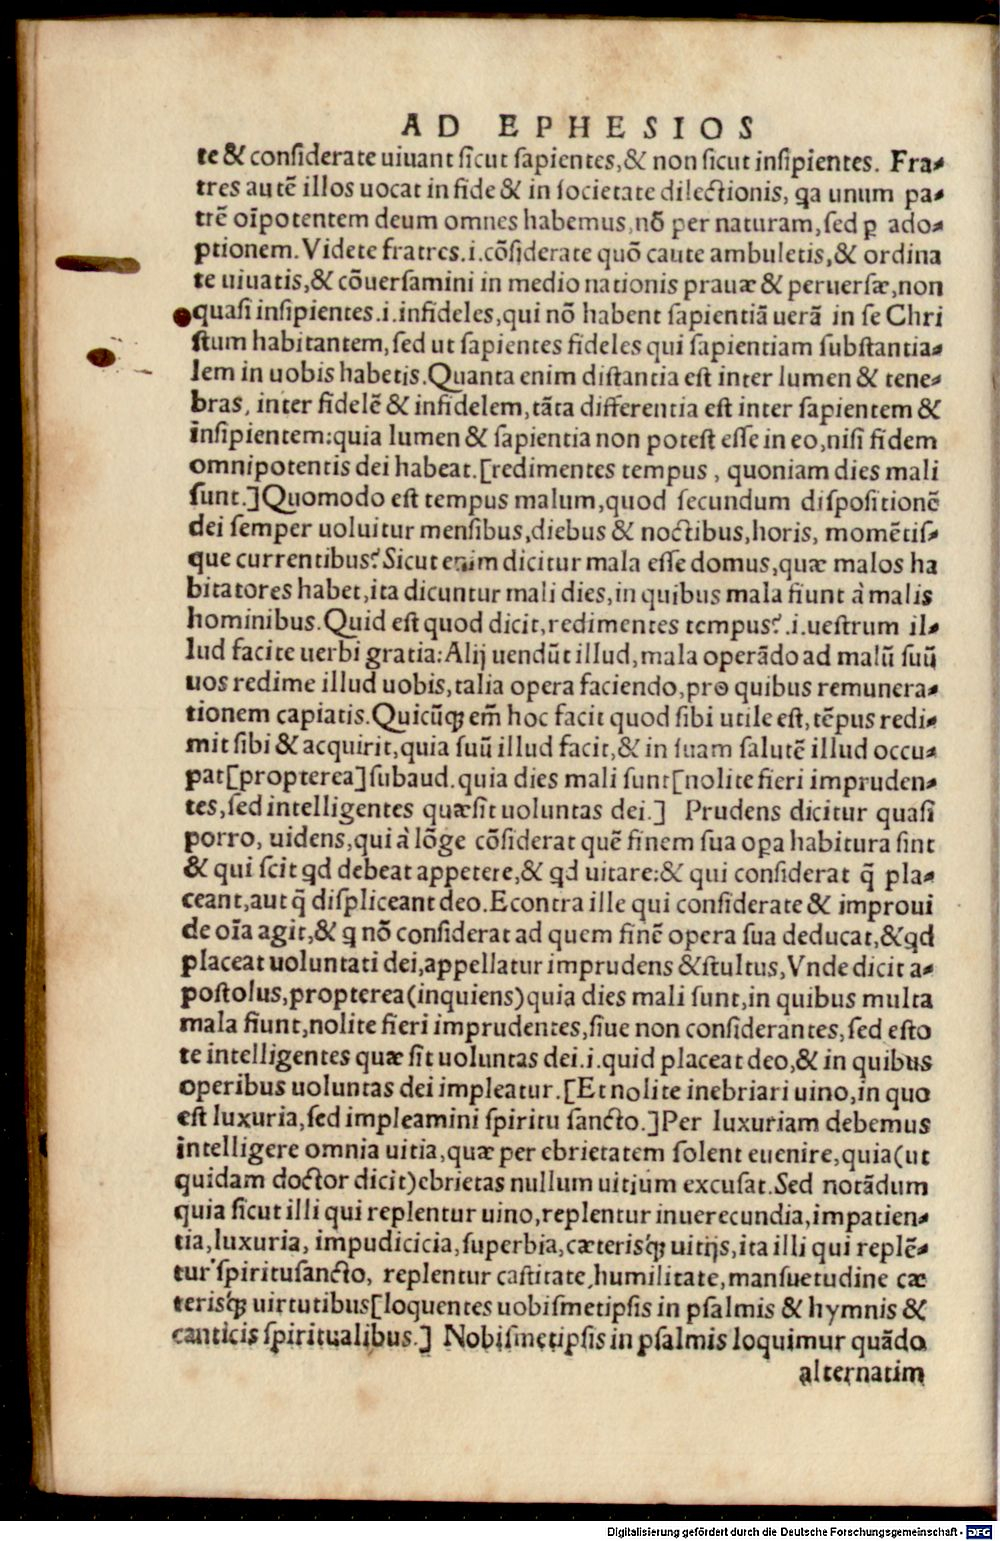 AD EPHESIOS
te & conſiderate uiuant ſicut ſapientes, & non ſicut inſipientes. Fra-
tres autē illos uocat in fide & in ſocietate dilectionis, ꝗa unum pa-
trē oīpotentem deum omnes habemus, nō per naturam, ſed ꝑ ado-
ptionem. Videte fratres .i. cōſiderate quō caute ambuletis, & ordina
te uiuatis, & cōuerſamini in medio nationis prauæ & peruerſæ, non
quaſi inſipientes .i. infideles, qui nō habent ſapientiā uerā in ſe Chri
ſtum habitantem, ſed ut ſapientes fideles qui ſapientiam ſubſtantia-
lem in uobis habetis. Quanta enim diſtantia eſt inter lumen & tene-
bras, inter fidelē & infidelem, tāta differentia eſt inter ſapientem &
inſipientem: quia lumen & ſapientia non poteſt eſſe in eo, niſi fidem
omnipotentis dei habeat. [redimentes tempus, quoniam dies mali
ſunt.] Quomodo eſt tempus malum, quod ſecundum diſpoſitionē
dei ſemper uoluitur menſibus, diebus & noctibus, horis, momētiſ-
que currentibus? Sicut enim dicitur mala eſſe domus, quæ malos ha
bitatores habet, ita dicuntur mali dies, in quibus mala fiunt à malis
hominibus. Quid eſt quod dicit, redimentes tempus? .i. ueſtrum il-
lud facite uerbi gratia: Alij uendūt illud, mala operādo ad malū ſuū
uos redime illud uobis, talia opera faciendo, pro quibus remunera-
tionem capiatis. Quicūqꝫ em̄ hoc facit quod ſibi utile eſt, tēpus redi-
mit ſibi & acquirit, quia ſuū illud facit, & in ſuam ſalutē illud occu-
pat [propterea] ſubaud. quia dies mali ſunt [nolite fieri impruden-
tes, ſed intelligentes quæ ſit uoluntas dei.] Prudens dicitur quaſi
porro, uidens, qui à lōge cōſiderat quē finem ſua oꝑa habitura ſint
& qui ſcit ꝗd debeat appetere, & ꝗd uitare: & qui conſiderat q̄ pla-
ceant, aut q̄ diſpliceant deo. Econtra ille qui conſiderate & improui
de oīa agit, & ꝗ nō conſiderat ad quem finē opera ſua deducat, & ꝗd
placeat uoluntati dei, appellatur imprudens & ſtultus, Vnde dicit a-
poſtolus, propterea (inquiens) quia dies mali ſunt, in quibus multa
mala fiunt, nolite fieri imprudentes, ſiue non conſiderantes, ſed eſto
te intelligentes quæ ſit uoluntas dei .i. quid placeat deo, & in quibus
operibus uoluntas dei impleatur. [Et nolite inebriari uino, in quo
eſt luxuria, ſed impleamini ſpiritu ſancto.] Per luxuriam debemus
intelligere omnia uitia, quæ per ebrietatem ſolent euenire, quia (ut
quidam doctor dicit) ebrietas nullum uitium excuſat. Sed notādum
quia ſicut illi qui replentur uino, replentur inuerecundia, impatien-
tia, luxuria, impudicicia, ſuperbia, cæteriſqꝫ uitijs, ita illi qui replē-
tur ſpirituſancto, replentur caſtitate, humilitate, manſuetudine cæ
teriſqꝫ uirtutibus [loquentes uobiſmetipſis in pſalmis & hymnis &
canticis ſpiritualibus.] Nobiſmetipſis in pſalmis loquimur quādo
alternatim
Digitalisierung gefördert durch die Deutsche Forschungsgemeinschaft - DFG